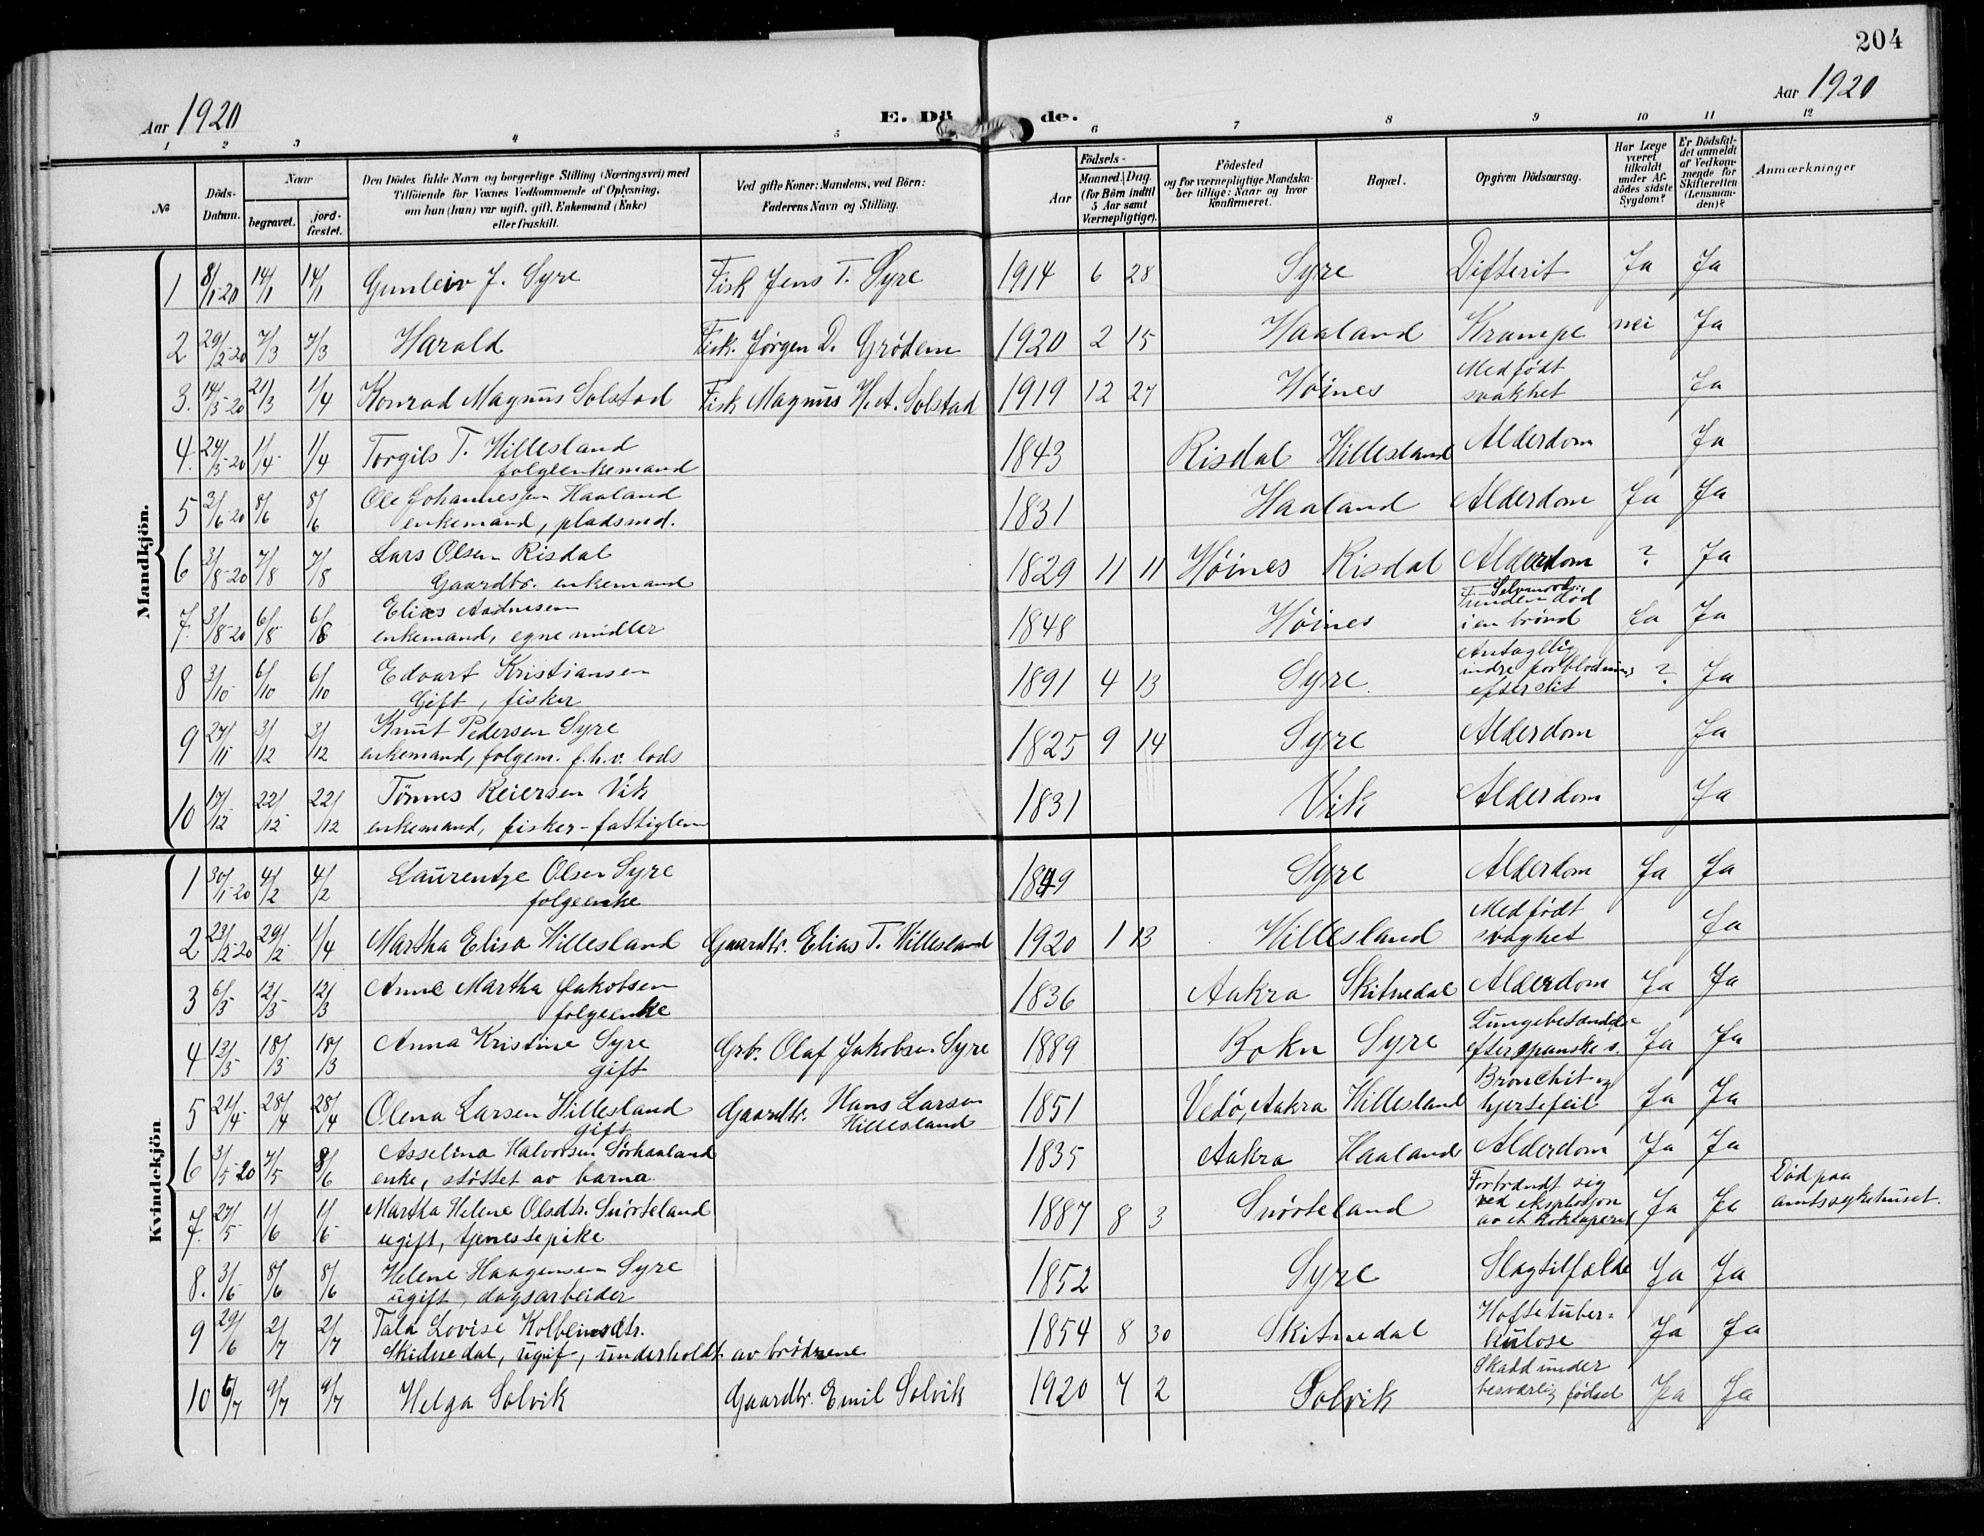 204
Aar 1920
E. Dö de.
Aar 1920
1 2 3 4 5 6 7 8 9 10 11 12
№
Döds-Datum.
Naar
begravet.
jordfæstet.
Den Dödes fulde Navn og borgerlige Stilling (Næringsvei) med
Tilföiende for Voxnes Vedkommende af Oplysning,
om han (hun) var ugift, gift, Enkemand (Enke)
eller fraskilt.
Ved gifte Koner: Mandens, ved Börn:
Faderens Navn og Stilling.
Födsels-
Aar
Maaned. Dag.
(for Börn indtil
5 Aar samt
Værnepligtige).
Födested
og for værnepligtige Mandska-
ber tillige: Naar og hvor
konfirmeret.
Bopæl.
Opgiven Dödsaarsag.
Har Læge
været
tilkaldt
under Af-
dödes sidste
Sygdom?
Er Dödsfal-
det anmeldt
af Vedkom-
mende for
Skifteretten
(Lensman-
den)?
Anmærkninger
Mandkjön.
1 8/1-20 14/1 14/1 Gunleiv J. Syre Fisk Jens T. Syre 1914 6 28 Syre Difterit Ja Ja
2 29/2-20 7/3 7/3 Harald Fisk. Jørgen D. Grødem 1920 2 15 Haaland Krampe nei Ja
3. 14/3-20 21/3 1/4 Konrad Magnus Solstad Fisk Magnus H. A. Solstad 1919 12 27 Høines Medfödt
svakhet Ja
4. 24/3-20 1/4 1/4 Torgils T. Hillesland
folgeenkemand 1843 Risdal Hillesland Alderdom Ja
5 3/6-20 8/6 8/6 Ole Johannessen Haaland
enkemand, pladsmd. 1831 Haaland Alderdom Ja Ja
6 3/8-20 7/8 7/8 Lars Olsen Risdal
Gaardbr. enkemand 1829 11 11 Høines Risdal Alderdom ? Ja
7. 3/8-20 6/8 6/8 Elias Aadnesen
enkemand, egne midler 1848 Høines Selvmord:
Funden död
i en brönd Ja Ja
8 3/10 6/10 6/10 Edvart Kristiansen
Gift, fisker 1891 4 13 Syre. Antaglig
indre forblödning
efter slit ? Ja
9 27/11 3/12 3/12 Knut Pedersen Syre
enkemand, folgem. f.h.v. lods 1825 9 14 Syre Alderdom Ja
10 17/12 22/12 22/12 Tönnes Reiersen Vik
enkemand, fisker-fattiglem 1831 Vik Alderdom Ja
Kvindekjön
1 30/1-20 4/2 4/2 Laurentze Olsen Syre
folgeenke 1849 Syre Alderdom Ja Ja
2 23/2-20 29/2 1/4 Martha Elisa Hillesland Gaardbr. Elias T. Hillesland 1920 1 13 Hillesland Medfödt
svaghet Ja
3 6/3 12/3 12/3 Anne Martha Jakobsen
folgeenke 1836 Aakra Skitnedal Alderdom Ja Ja
4 12/3 18/3 18/3 Anna Kristine Syre
gift Grb. Olaf Jakobsen Syre 1889 Bokn Syre Lungebetændelse
efter spanske s. Ja Ja
5 21/4 28/4 28/4 Olena Larsen Hillesland
gift Gaardbr. Hans Larsen
Hillesland 1851 Vedö, Aakra Hillesland Bronchit og
hjertefeil Ja Ja
6 3/5-20 7/5 8/6 Asselina Halvorsen Sørhaaland
enke, støttet av barna. 1835 Aakra Haaland Alderdom Ja Ja
7. 27/5 1/6 1/6 Martha Helene Olsdtr. Snörteland
ugift, tjenestepike 1887 8 3 Snörteland Forbrændt sig
ved eksplosjon
av et kokaparat Ja Ja Död paa
amtssykehuset.
8. 3/6 8/6 8/6 Helene Haagensen Syre
ugift, dagsarbeider 1852 Syre Slagtilfælde Ja Ja
9 29/6 2/7 2/7 Tala Lovise Kolbeinsdtr.
Skidnedal, ugift, underholdt av brödrene 1854 8 30 Skitnedal Hoftetuber=
kulose Ja Ja
10 6/7 9/7 9/7 Helga Solvik Gaardbr. Emil Solvik 1920 7 2 Solvik Skadd under
besværlig födsel Ja Ja